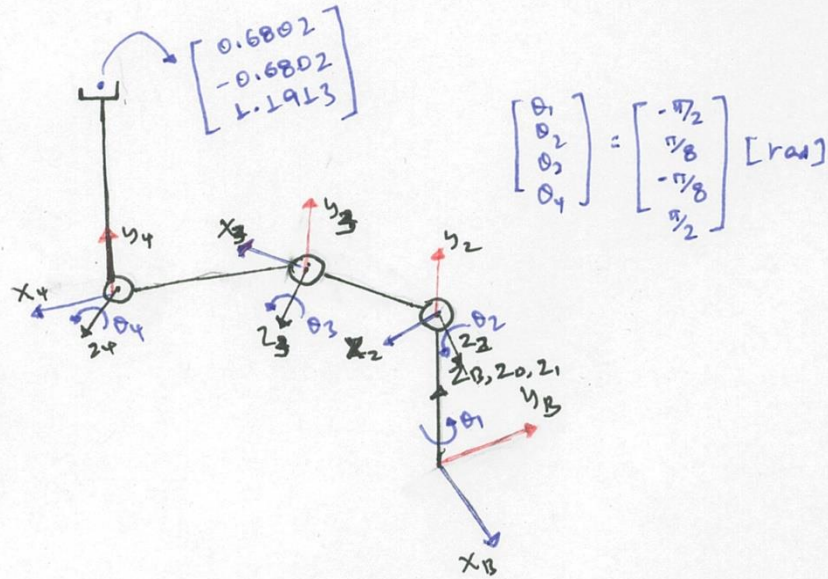 [0.6802
-0.6802
1.1913]
[θ1
θ2
θ3
θ4] = [-π/2
π/8
-π/8
π/2] [rad]
y4
x4
θ4
z4
x3
y3
θ3
z3
y2
θ2
x2
z2
zB, z0, z1
yB
θ1
xB